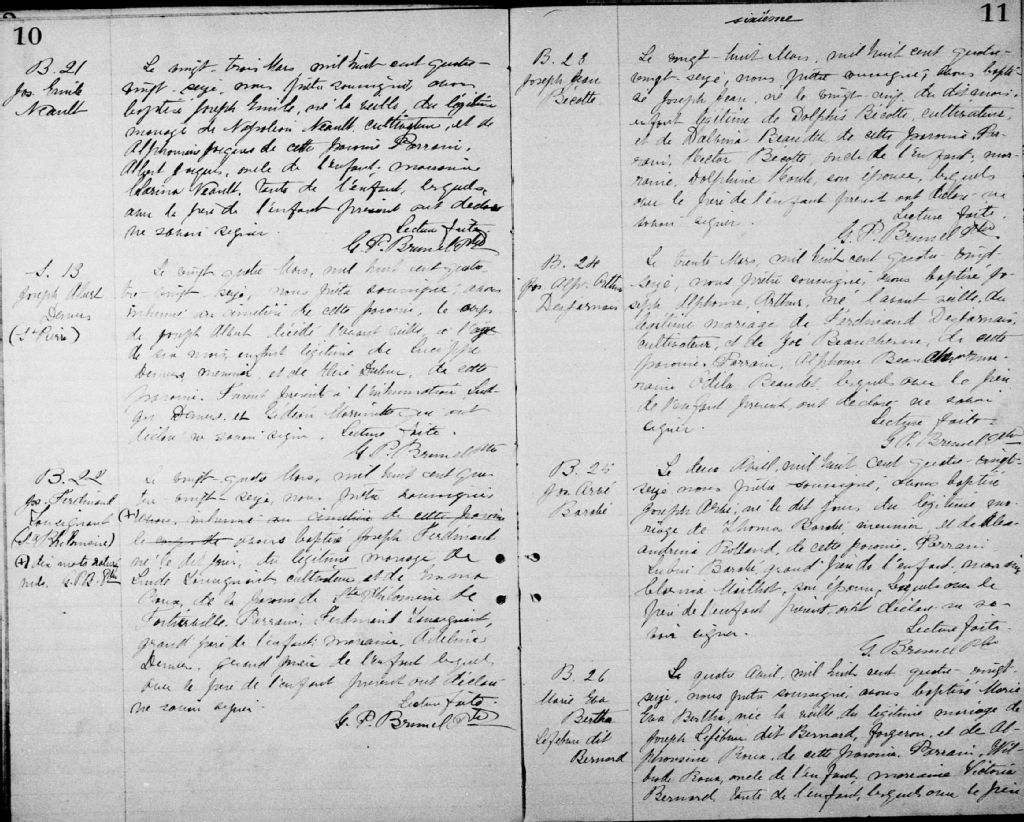 10
B. 21
Jos. Emile
Neault
Le vingt-trois Mars, mil huit-cent quatre-
vingt-seize, nous prêtre soussigné, avons
baptisé Joseph Emile, né la veille, du légitime
mariage de Napoleon Neault, cultivateur, et de
de cette paroisse Parrain,
Albert oncle de l'enfant, marraine
Neault, tante de l'enfant, lesquels
avec le père de l'enfant présent ont déclaré
ne savoir signer. Lecture faite
G. P. Brunel Ptre
S. 13
Joseph Albert
Demers
(St Pierre)
Le vingt quatre Mars, mil huit cent quatre
vingt-seize, nous prêtre soussigné, avons
inhumé au cimetière de cette paroisse, le corps
de Joseph Albert décédé l'avant veille, à l'age
de six mois, enfant légitime de
Demers meunier, et de de cette
paroisse. Furent présent à l'inhumation
Demers, et Gédéon qui ont
déclaré ne savoir signer. Lecture faite.
G. P. Brunel Ptre
B. 22
Jos. Ferdinand
(Ste Philomène)
G. P. B. Ptre
Le vingt-quatre Mars, mil huit cent qua-
tre-vingt-seize, nous prêtre soussigné
avons, inhumé au cimetière de cette paroisse
le corps de avons baptisé Joseph Ferdinand
né le dit jour, du légitime mariage de
cultivateur et de Emma
Roux, de la paroisse de Ste Philomène de
Fortierville. Parrain, Ferdinand
grand père de l'enfant, marraine, Adeline
Demers, grand mère de l'enfant lesquels
avec le père de l'enfant présent ont déclaré
ne savoir signer. Lecture faite.
G. P. Brunel Ptre
sixième
11
B. 23
Joseph Jean
Bécotte
Le vingt-huit Mars, mil huit cent quatre-
vingt-seize, nous prêtre soussigné, avons bapti-
sé Joseph Jean, né le vingt-cinq du dit mois,
enfant légitime de Dolphis Bécotte, cultivateur,
et de Beaudet de cette paroisse. Par-
rain, Hector Bécotte, oncle de l'enfant, mar-
raine, Dolphine son épouse, lesquels
avec le père de l'enfant présent ont déclaré ne
savoir signer. Lecture faite.
G. P. Brunel Ptre
B. 24
Jos Alph. Arthur
Desharnais
Le trente Mars, mil huit cent quatre-vingt
seize, nous prêtre soussigné, avons baptisé Jo-
seph Alphonse Arthur, né l'avant veille, du
légitime mariage de Ferdinand Desharnais,
cultivateur, et de Zoé Beauchesne, de cette
paroisse. Parrain, Alphonse mar-
raine Odila Beaudet, lesquels avec le père
de l'enfant présent, ont déclaré ne savoir
signer. Lecture faite-
G. P. Brunel Ptre
B. 25
Jos Arsé
Barabé
Le deux Avril, mil huit cent quatre-vingt-
seize, nous prêtre soussigné, avons baptisé
Joseph né le dit jour du légitime ma-
riage de Thomas Barabé meunier et de
Rolland, de cette paroisse. Parrain
Barabé grand père de l'enfant, marraine
Mailhot, son épouse, lesquels avec le
père de l'enfant présent, ont déclaré ne sa-
voir signer. Lecture faite-
G Brunel Ptre
B. 26
Marie Eva
Bertha
Lefebvre dit
Bernard
Le quatre Avril, mil huit cent quatre-vingt-
seize, nous prêtre soussigné avons baptisé Marie
Eva Bertha, née la veille du légitime mariage de
Joseph Lefebvre dit Bernard, forgeron, et de Al-
phonsine Roux, de cette paroisse. Parrain,
Roux, oncle de l'enfant, marraine Victoria
Bernard, tante de l'enfant, lesquels avec le père